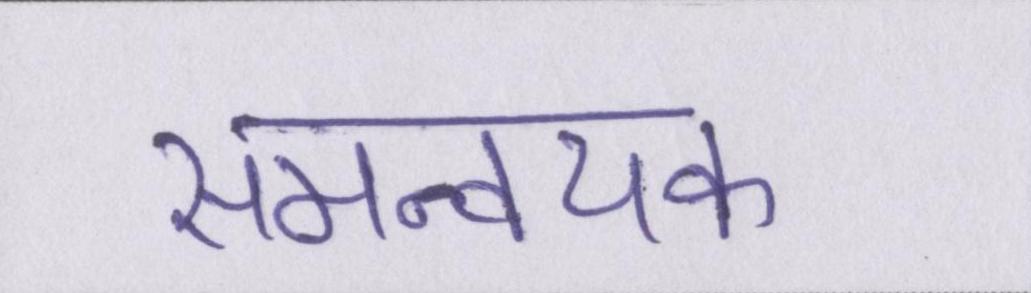 समन्वयक